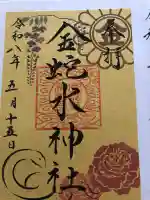 奉拝
金蛇水神社
令和八年五月十五日